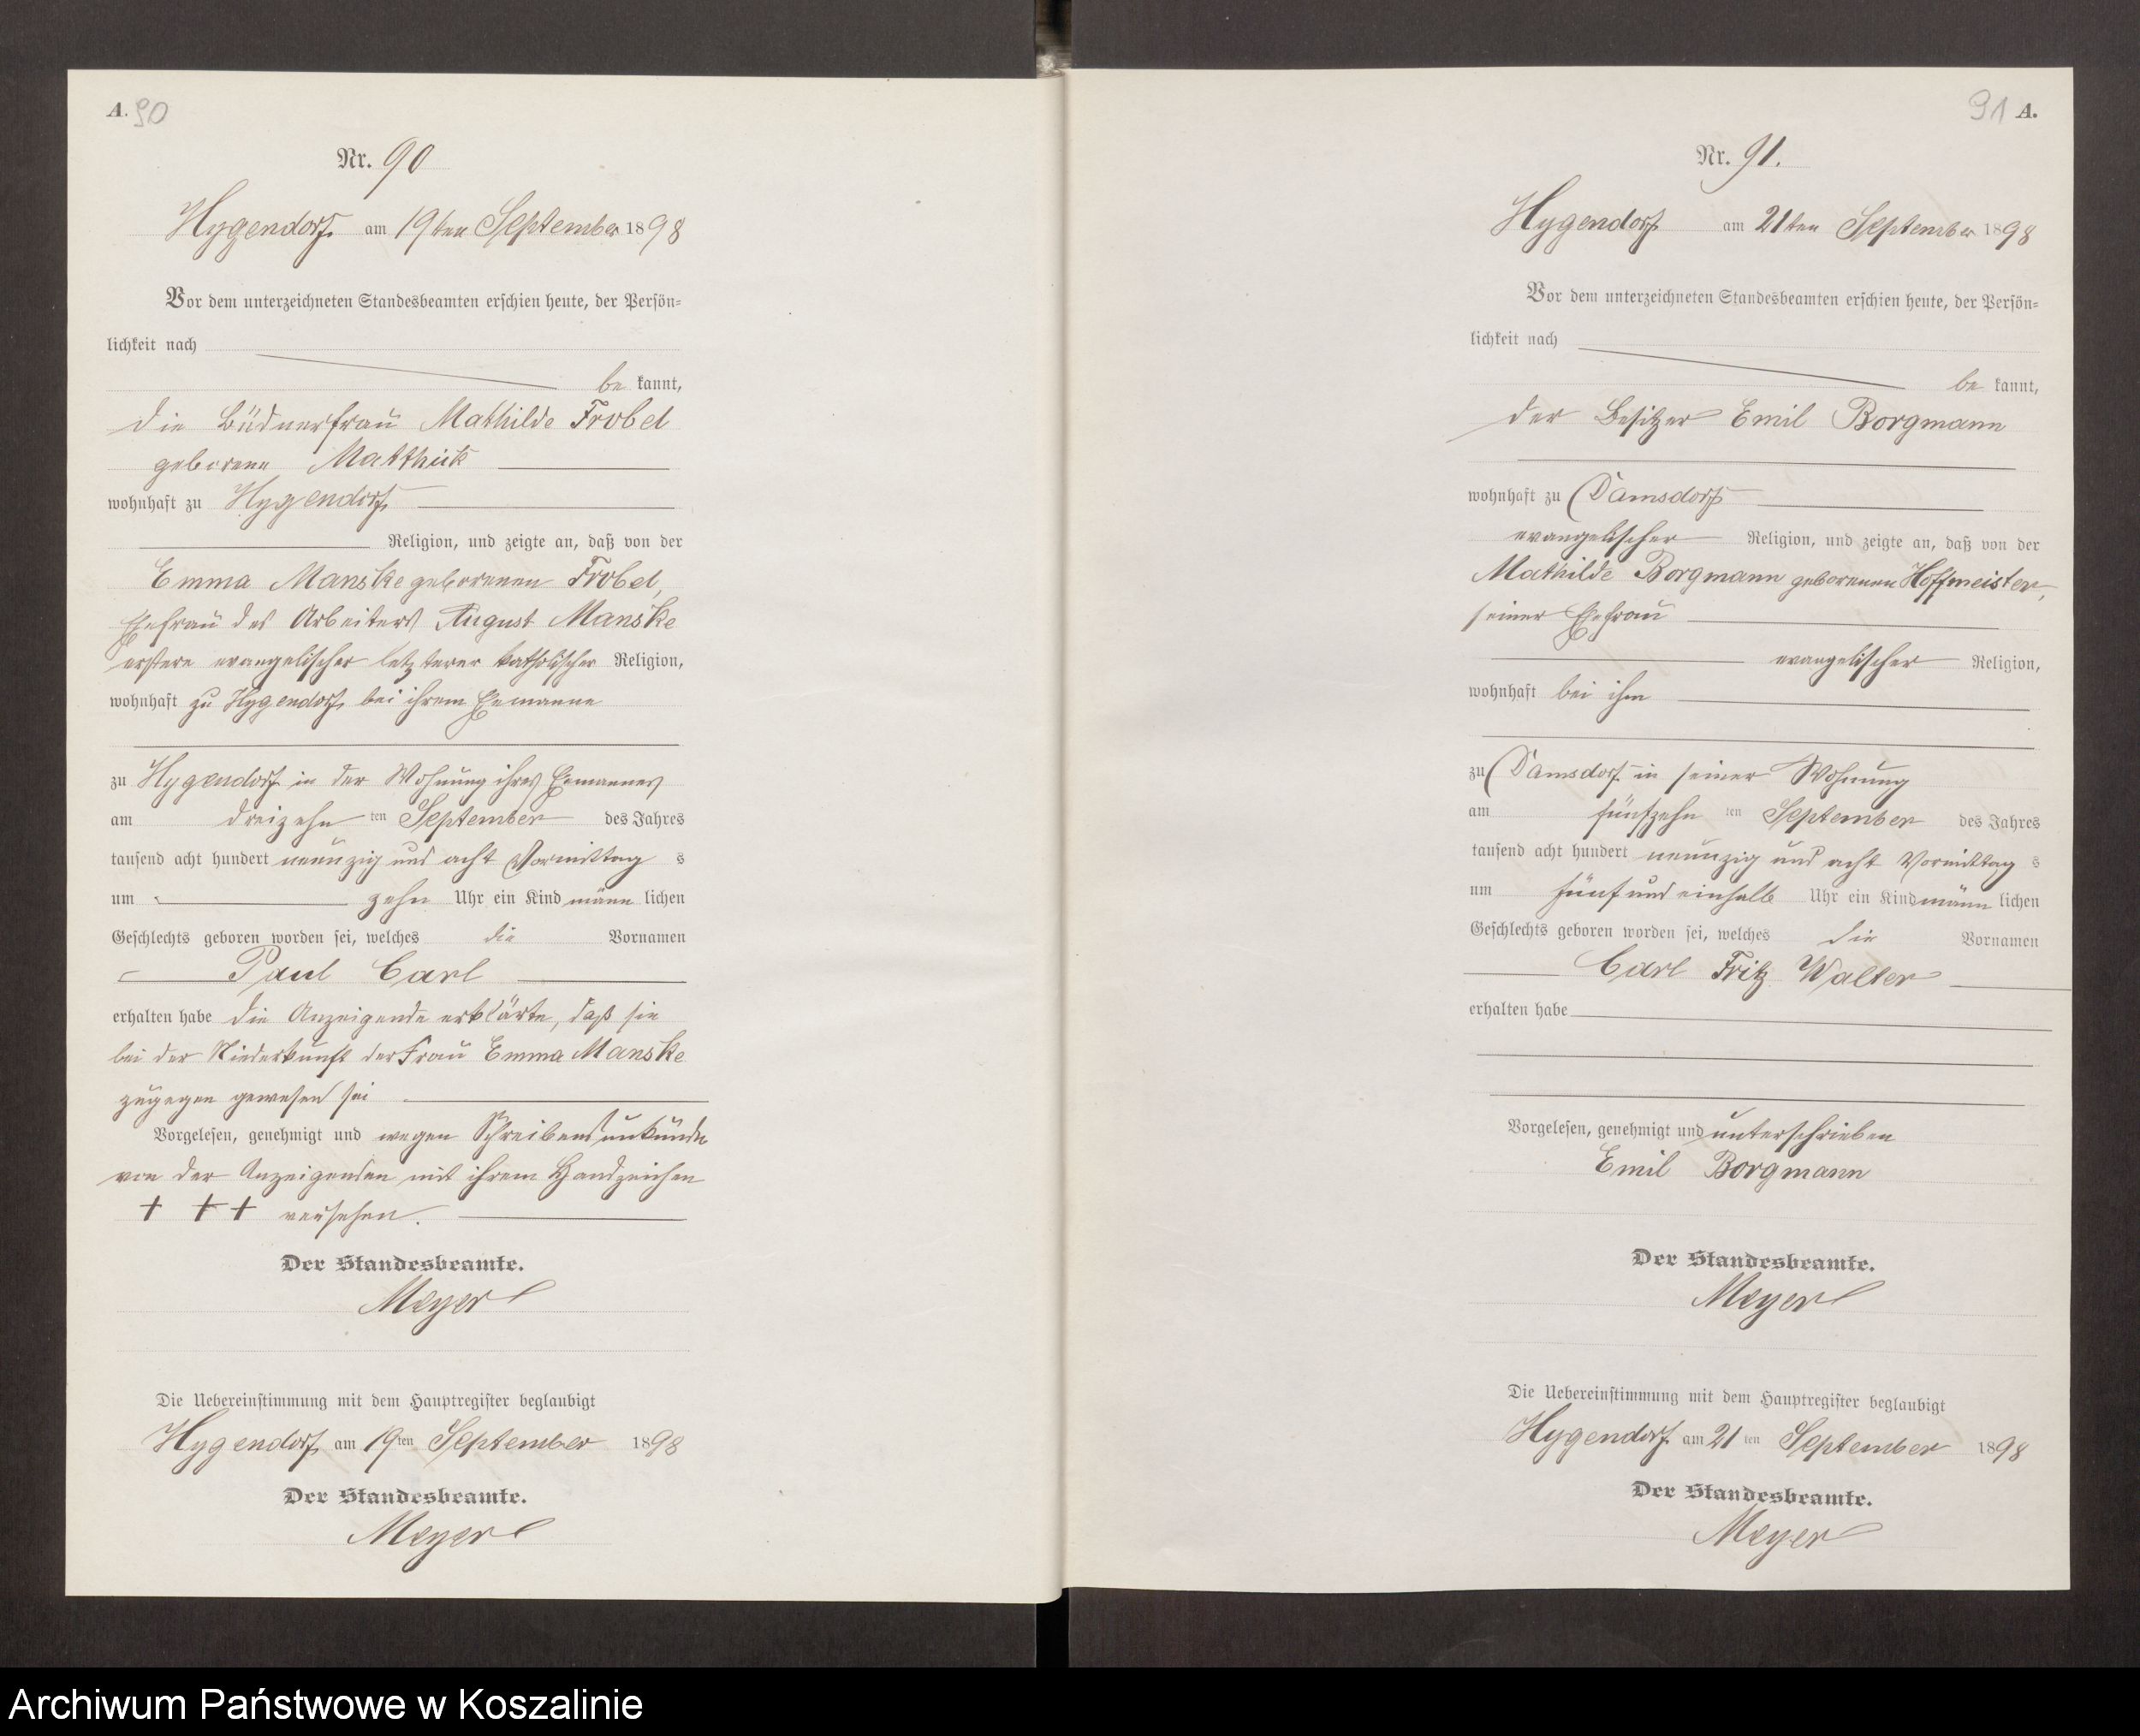 A. 90
Nr. 90
Hygendorf am 19ten September 1898
Vor dem unterzeichneten Standesbeamten erschien heute, der Persön-
lichkeit nach
be kannt,
die Büdnerfrau Mathilde Frobel
geborene
wohnhaft zu Hygendorf
Religion, und zeigte an, daß von der
Emma Manske geborenen Frobel,
Ehefrau des Arbeiters August Manske
erstere evangelischer letzterer katholischer Religion,
wohnhaft zu Hygendorf, bei ihrem Ehemanne
zu Hygendorf in der Wohnung ihres Ehemannes
am dreizehn ten September des Jahres
tausend acht hundert neunzig und acht Vormittag s
um zehn Uhr ein Kind männ lichen
Geschlechts geboren worden sei, welches die Vornamen
Paul Carl
erhalten habe die Anzeigende erklärte, daß sie
bei der Niederkunft der Frau Emma Manske
zugegen gewesen sei
Vorgelesen, genehmigt und wegen Schreibensunkunde
von der Anzeigenden mit ihrem Handzeichen
+ + + versehen.
Der Standesbeamte.
Meyer
Die Uebereinstimmung mit dem Hauptregister beglaubigt
Hygendorf, am 19ten September 1898
Der Standesbeamte.
Meyer
91 A.
Nr. 91.
Hygendorf am 21ten September 1898
Vor dem unterzeichneten Standesbeamten erschien heute, der Persön-
lichkeit nach
be kannt,
der Besitzer Emil Borgmann
wohnhaft zu Damsdorf
evangelischer Religion, und zeigte an, daß von der
Mathilde Borgmann geborenen Hoffmeister,
seiner Ehefrau
evangelischer Religion,
wohnhaft bei ihm
zu Damsdorf in seiner Wohnung
am fünfzehn ten September des Jahres
tausend acht hundert neunzig und acht Vormittag s
um fünf und einhalb Uhr ein Kind männ lichen
Geschlechts geboren worden sei, welches die Vornamen
Carl Fritz Walter
erhalten habe
Vorgelesen, genehmigt und unterschrieben
Emil Borgmann
Der Standesbeamte.
Meyer
Die Uebereinstimmung mit dem Hauptregister beglaubigt
Hygendorf am 21 ten September 1898
Der Standesbeamte.
Meyer
Archiwum Państwowe w Koszalinie